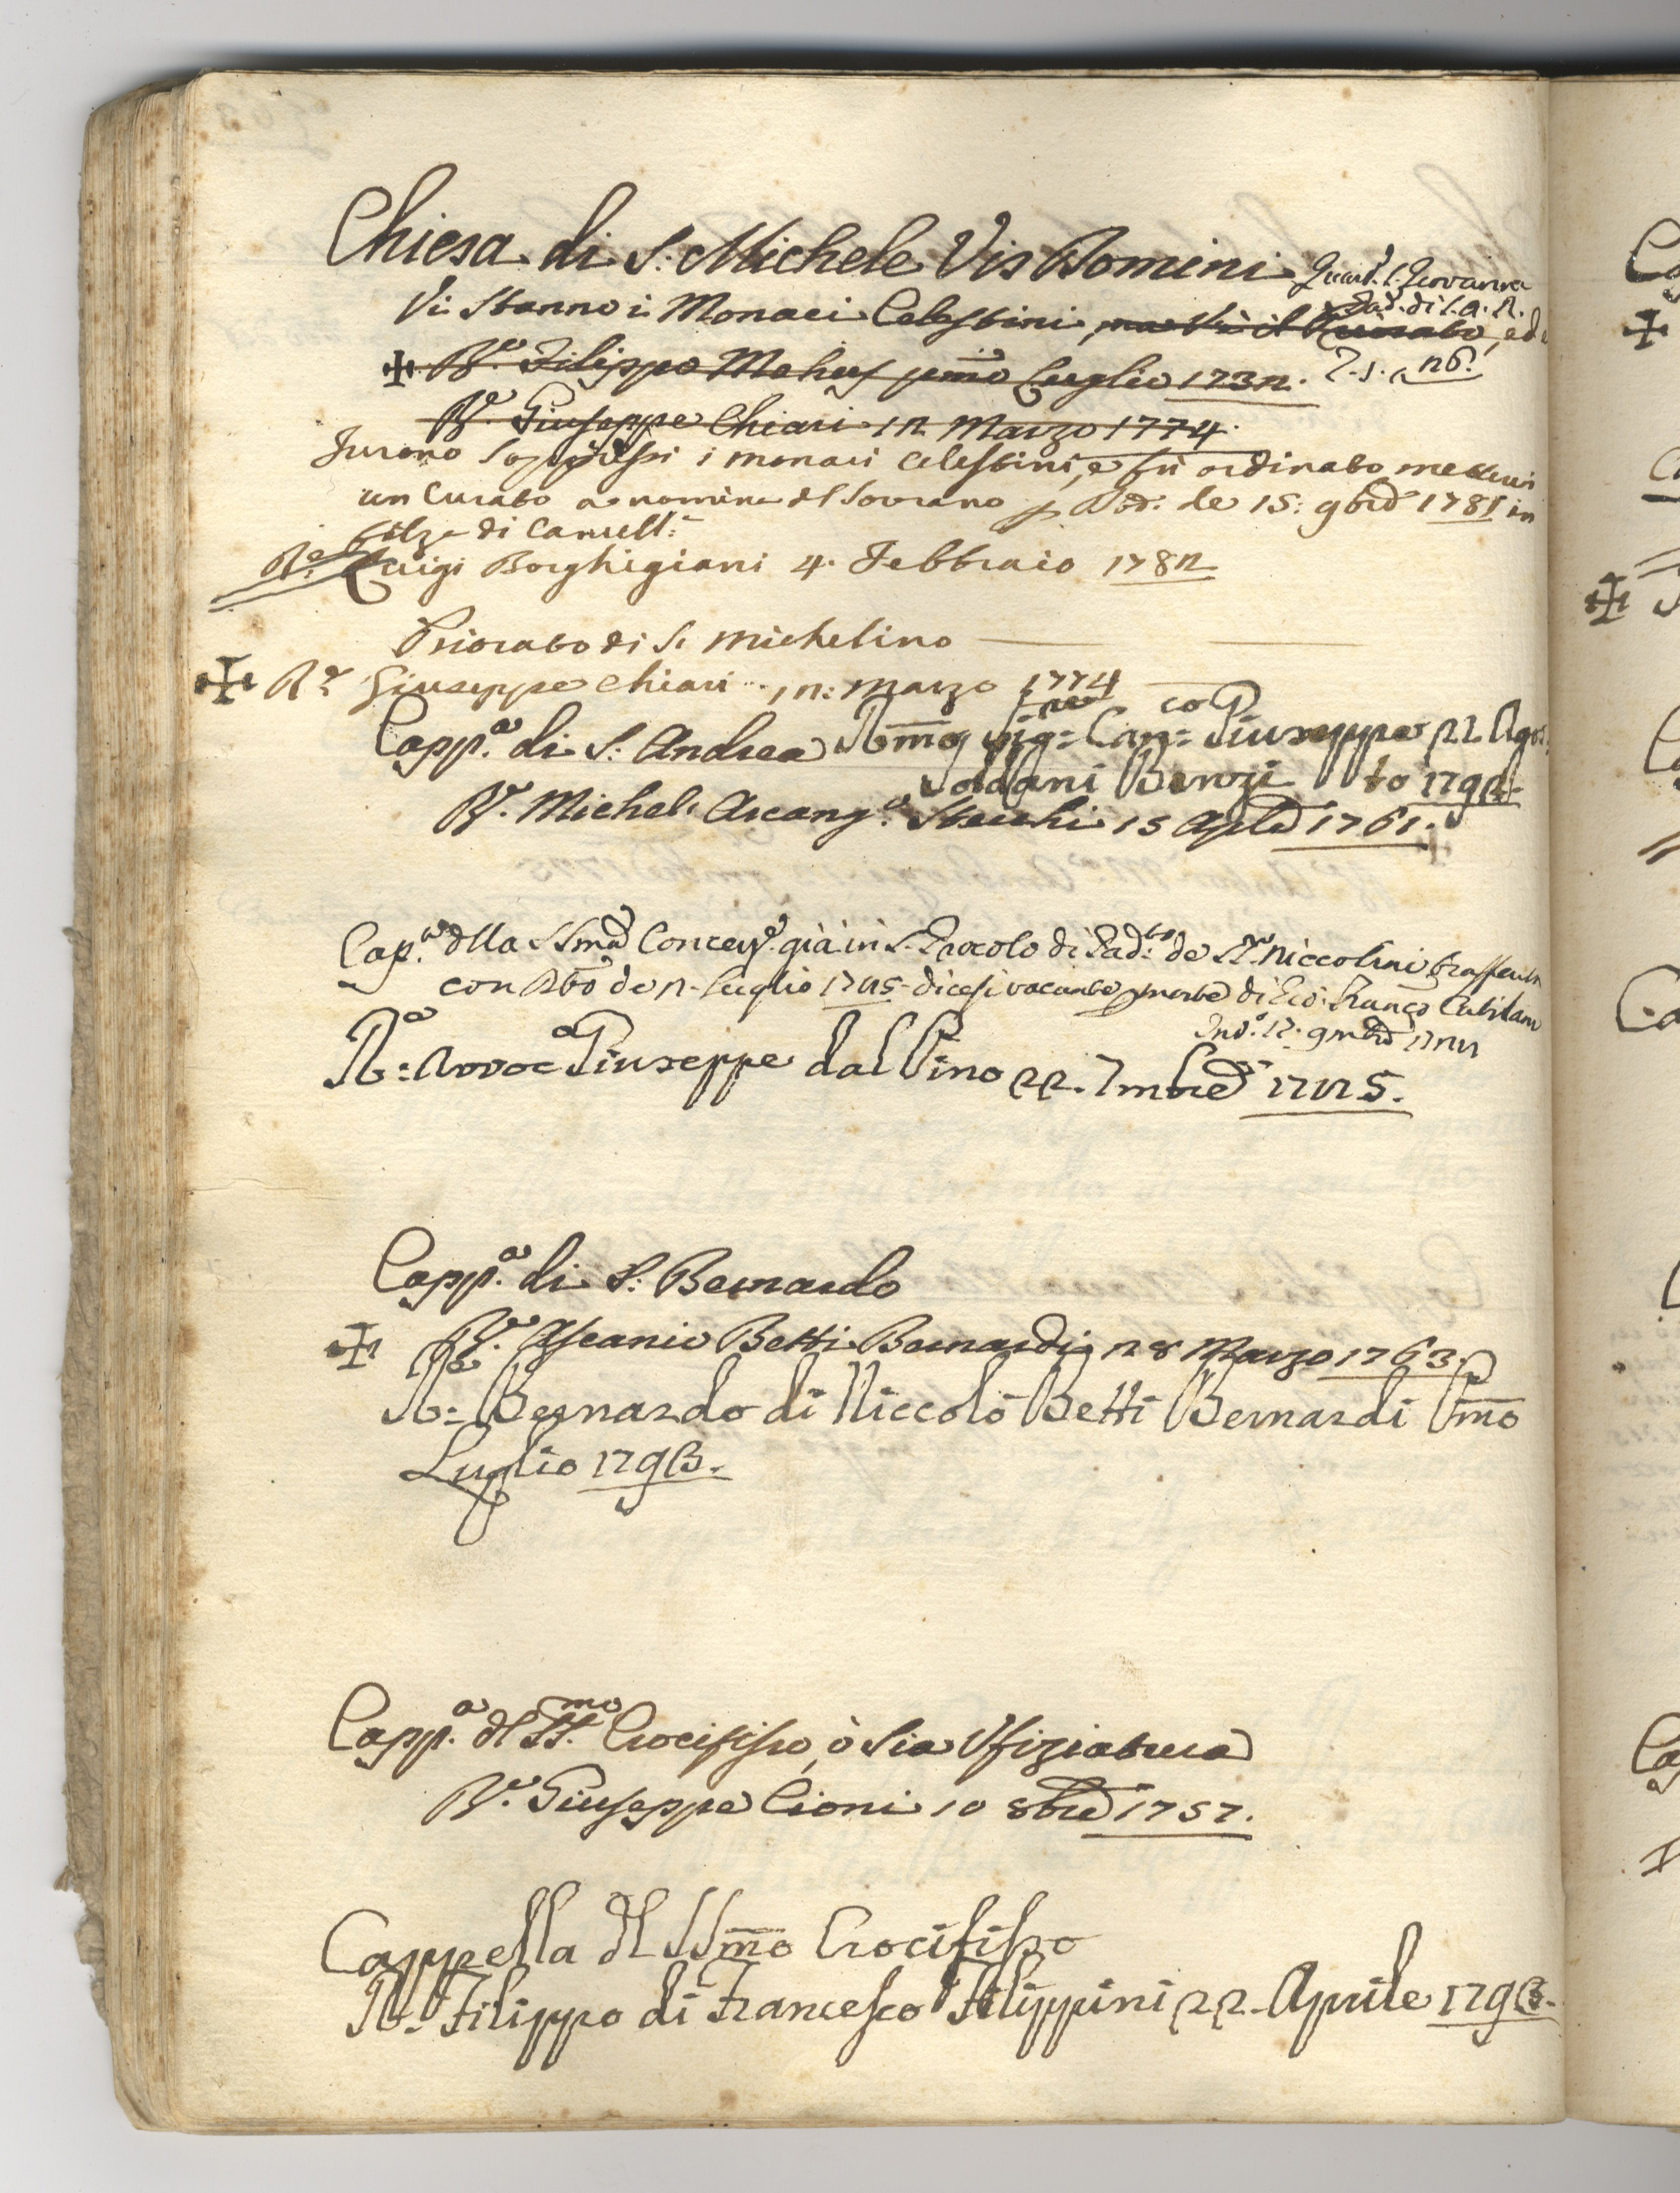 Chiesa di S: Michele Vis Domini Quart. S. Giovanni
Vi Stanno i Monaci Celestini, ma vi è il Curato, ed è Pad. di S. A. R.
✠ Rre. Filippo Mehus pmo Luglio 1732. P. 1. 126.
Rre. Giuseppe Chiari 12 Marzo 1774.
Furono Soppressi i monaci Celestini, e fù ordinato mettervi
un Curato a nomina dl Sovrano p de 15: 9bre 1781 in
filza di Cancell:
Re. Luigi Borghigiani 4. Febbraio 1782
Priorato di S. Michelino
✠ Re Giuseppe Chiari 12: Marzo 1774
Capp.a di S: Andrea Rmo Sig:re Can:co Giuseppe 22 Agos
Soldani Benzi to 1794.
Re. Michel Arcang.o Stecchi 15 Aple 1761.
Cap.a dlla SSma Concez.e già in S. Procolo di Pad.to de SS.ri Niccolini trasferita
con de 12. Luglio 1785. dicesi vacante p morte di Gio: Franco Catilani
Ind. 12. 9mbre
Re: Avvoc Giuseppe dal Pino 22. 7mbre 1785.
Capp.a di S: Bernardo
✠ Re. Ascanio Betti Bernardi 28 Marzo 1763.
Re: Bernardo di Niccolò Betti Bernardi Pmo
Luglio 1793.
Capp.a dl SS.mo Crocifisso, ò sia Ufiziatura
Re. Giuseppe Cioni 10 8bre 1757.
Cappella dl SSmo Crocifisso
Re. Filippo di Francesco Filippini 22. Aprile 1793.